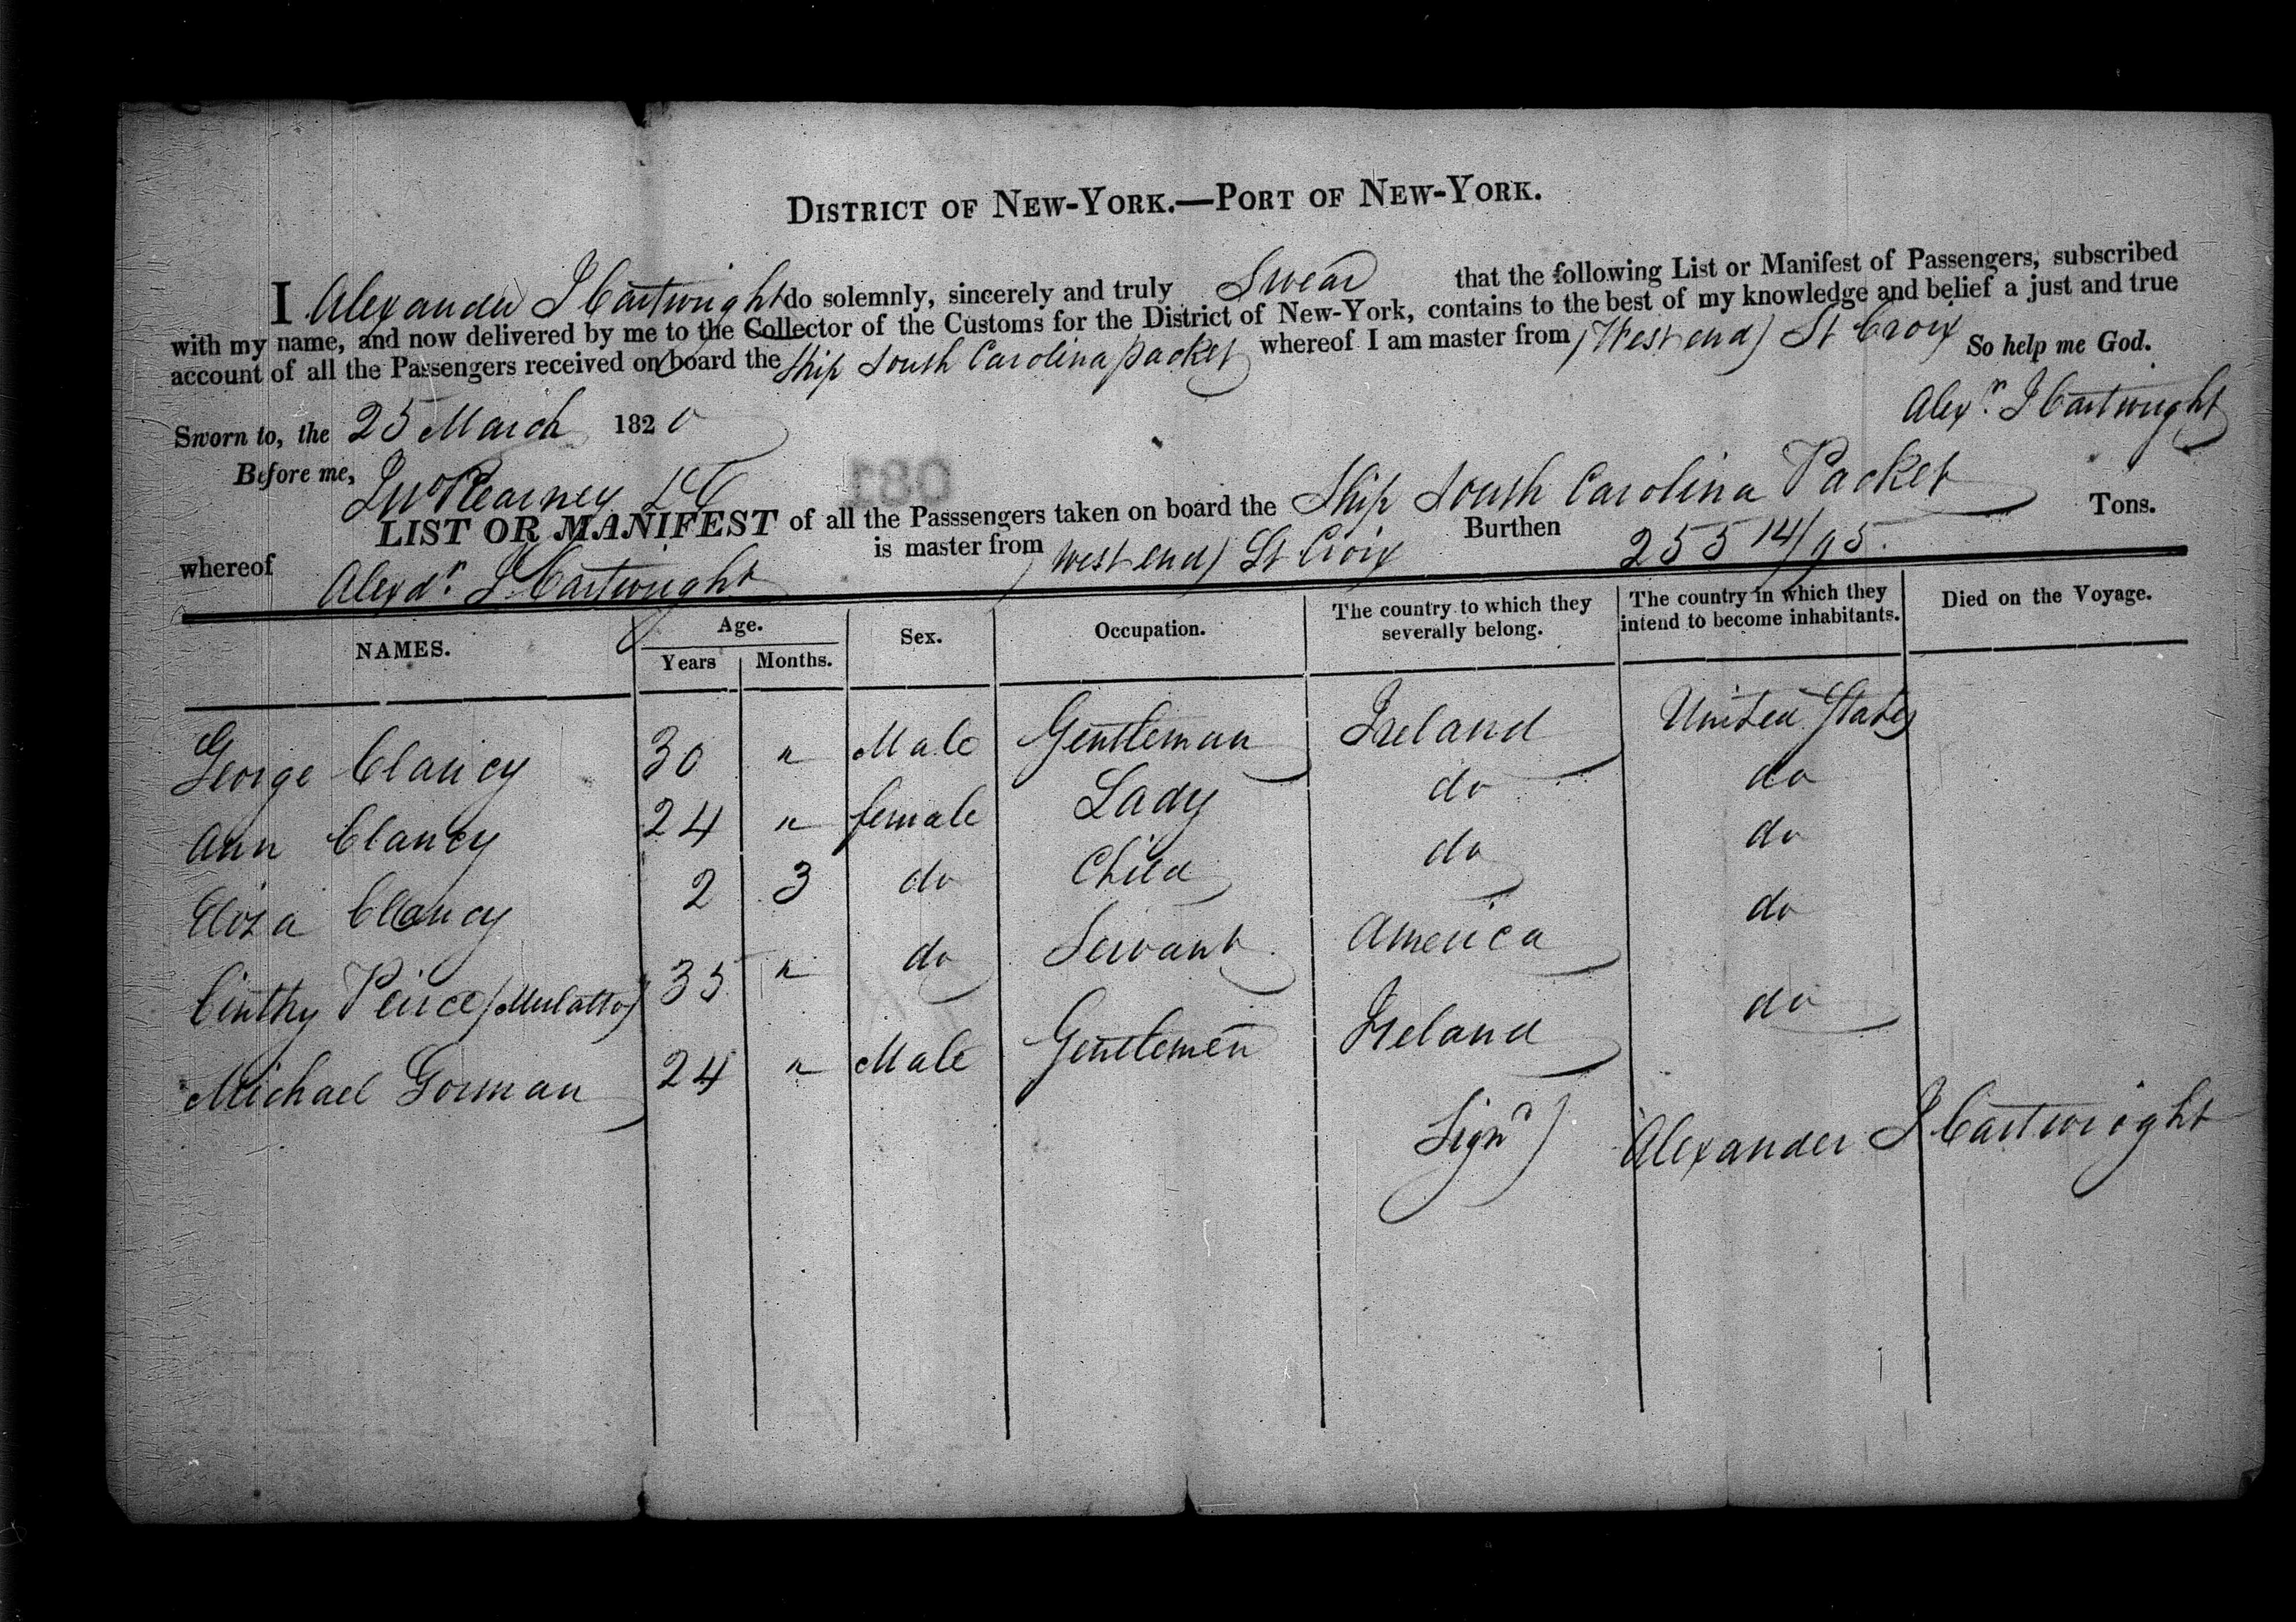 DISTRICT OF NEW-YORK.—PORT OF NEW-YORK.
I Alexander J Cartwright do solemnly, sincerely and truly Swear that the following List or Manifest of Passengers, subscribed
with my name, and now delivered by me to the Collector of the Customs for the District of New-York, contains to the best of my knowledge and belief a just and true
account of all the Passengers received on board the Ship South Carolina packet whereof I am master from (West end) St Croix So help me God.
Alexr. J Cartwright
Sworn to, the 25 March 1820
Before me,
LIST OR MANIFEST of all the Passsengers taken on board the Ship South Carolina Packet
whereof Alexdr. J Cartwright is master from (West end) St Croix Burthen 255 14/95. Tons.
NAMES. Age. Years Months. Sex. Occupation. The country to which they severally belong. The country in which they intend to become inhabitants. Died on the Voyage.
George Clancy 30 " Male Gentleman Ireland United States
Ann Clancy 24 " female Lady do do
Eliza Clancy 2 3 do Child do do
Cinthy Peirce (Mulatto) 35 " do Servant America do
Michael Gorman 24 " Male Gentlemen Ireland do
Signd) Alexander J Cartwright